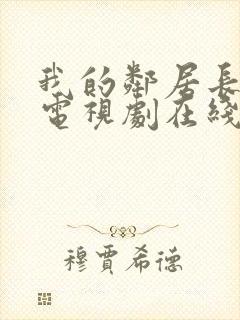 我的鄰居長
電視劇在綫
穆賈希德